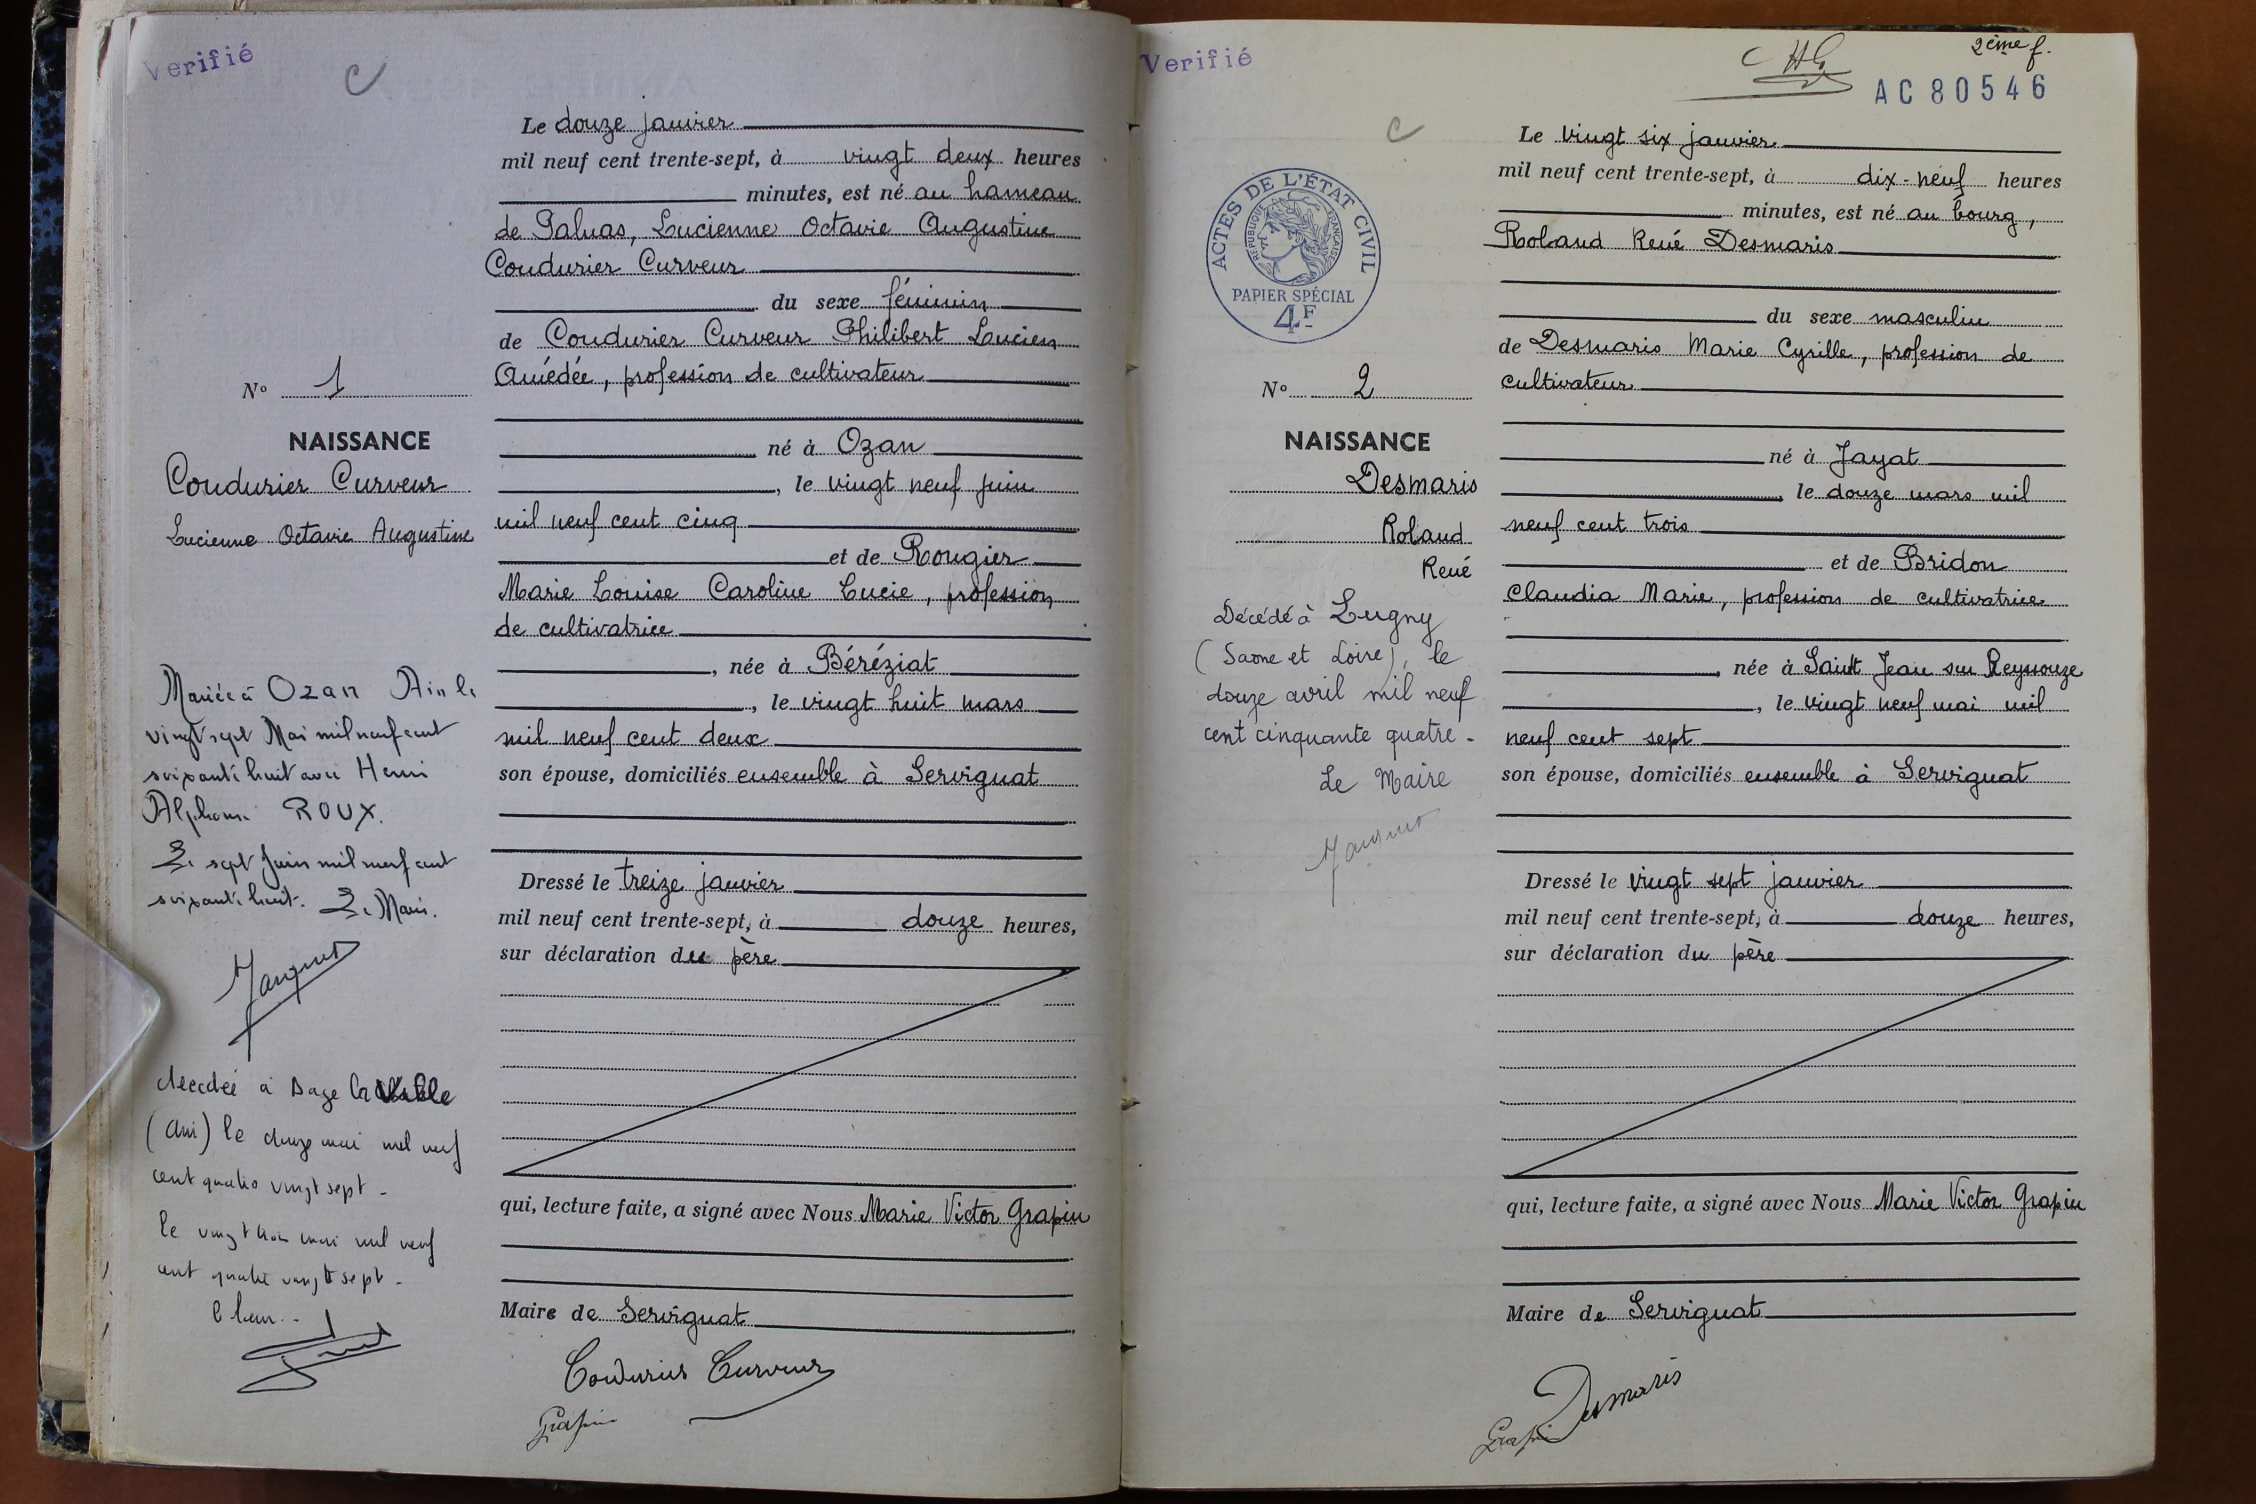 Verifié
C
Le douze janvier
mil neuf cent trente-sept, à vingt deux heures
minutes, est né au hameau
de Paluas, Lucienne Octavie Augustine
Coudurier Curveur
du sexe féminin
de Coudurier Curveur Philibert Lucien
Amédée, profession de cultivateur
né à Ozan
, le vingt neuf juin
mil neuf cent cinq
et de Rougier
Marie Louise Caroline Lucie, profession
de cultivatrice
, née à Béréziat
, le vingt huit mars
mil neuf cent deux
son épouse, domiciliés ensemble à Servignat
Dressé le treize janvier
mil neuf cent trente-sept, à douze heures,
sur déclaration du père
qui, lecture faite, a signé avec Nous Marie Victor Grapin
Maire de Servignat
Coudurier Curveur
Grapin
No 1
NAISSANCE
Coudurier Curveur
Lucienne Octavie Augustine
Mariée à Ozan Ain le
vingt sept Mai mil neuf cent
soixante huit avec Henri
Alphonse ROUX.
Le sept Juin mil neuf cent
soixante huit. Le Maire.
décédée à Bage la Ville
(Ain) le douze mai mil neuf
cent quatre vingt sept -
le vingt trois mai mil neuf
cent quatre vingt sept -
Verifié
C
2ème f.
AC 80546
ACTES DE L'ÉTAT CIVIL
RÉPUBLIQUE FRANÇAISE
PAPIER SPÉCIAL
4F
No 2
NAISSANCE
Desmaris
Roland
René
Décédé à Lugny
(Saone et Loire), le
douze avril mil neuf
cent cinquante quatre -
Le Maire
Le vingt six janvier
mil neuf cent trente-sept, à dix-neuf heures
minutes, est né au bourg,
Roland René Desmaris
du sexe masculin
de Desmaris Marie Cyrille, profession de
cultivateur
né à Jayat
, le douze mars mil
neuf cent trois
et de Bridon
Claudia Marie, profession de cultivatrice
, née à Saint Jean sur Reyssouze
, le vingt neuf mai mil
neuf cent sept
son épouse, domiciliés ensemble à Servignat
Dressé le vingt sept janvier
mil neuf cent trente-sept, à douze heures,
sur déclaration du père
qui, lecture faite, a signé avec Nous Marie Victor Grapin
Maire de Servignat
Desmaris
Grapin